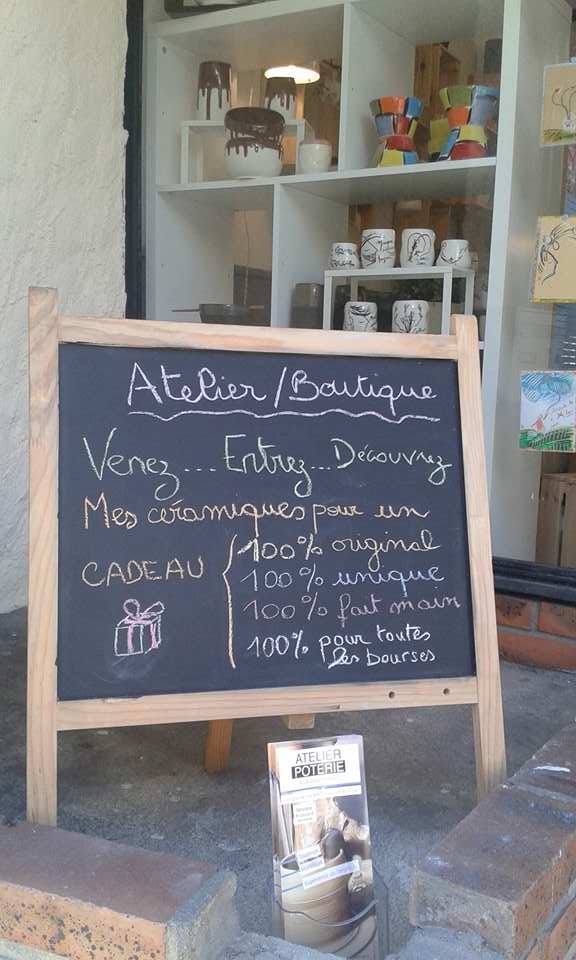 Atelier/Boutique
Venez....Entrez...Découvrez
Mes céramiques pour un
CADEAU
100% original
100% unique
100% fait main
100% pour toutes
les bourses
ATELIER
POTERIE